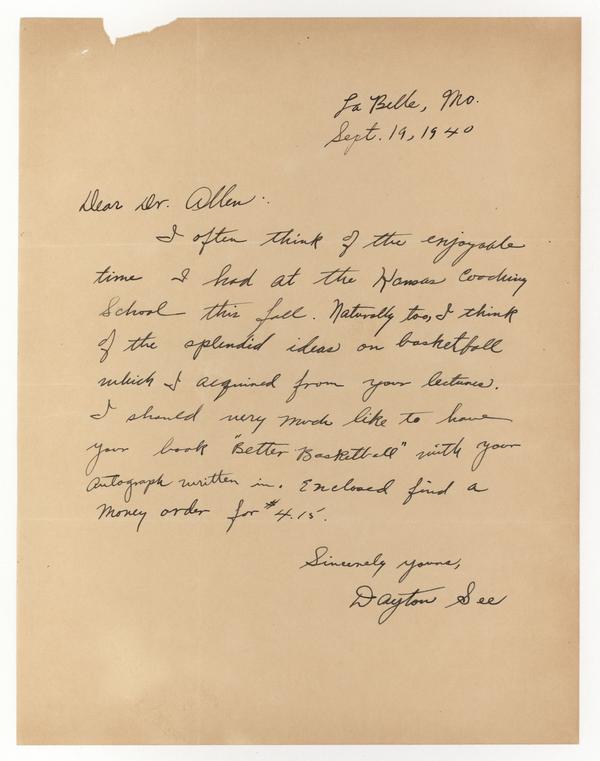 La Belle, Mo.
Sept. 19, 1940
Dear Dr. Allen:
I often think of the enjoyable
time I had at the Kansas Coaching
School this fall. Naturally too, I think
of the splendid ideas on basketball
which I acquired from your lectures.
I should very much like to have
your book "Better Basketball" with your
autograph written in. Enclosed find a
money order for $4.15.
Sincerely yours,
Dayton See